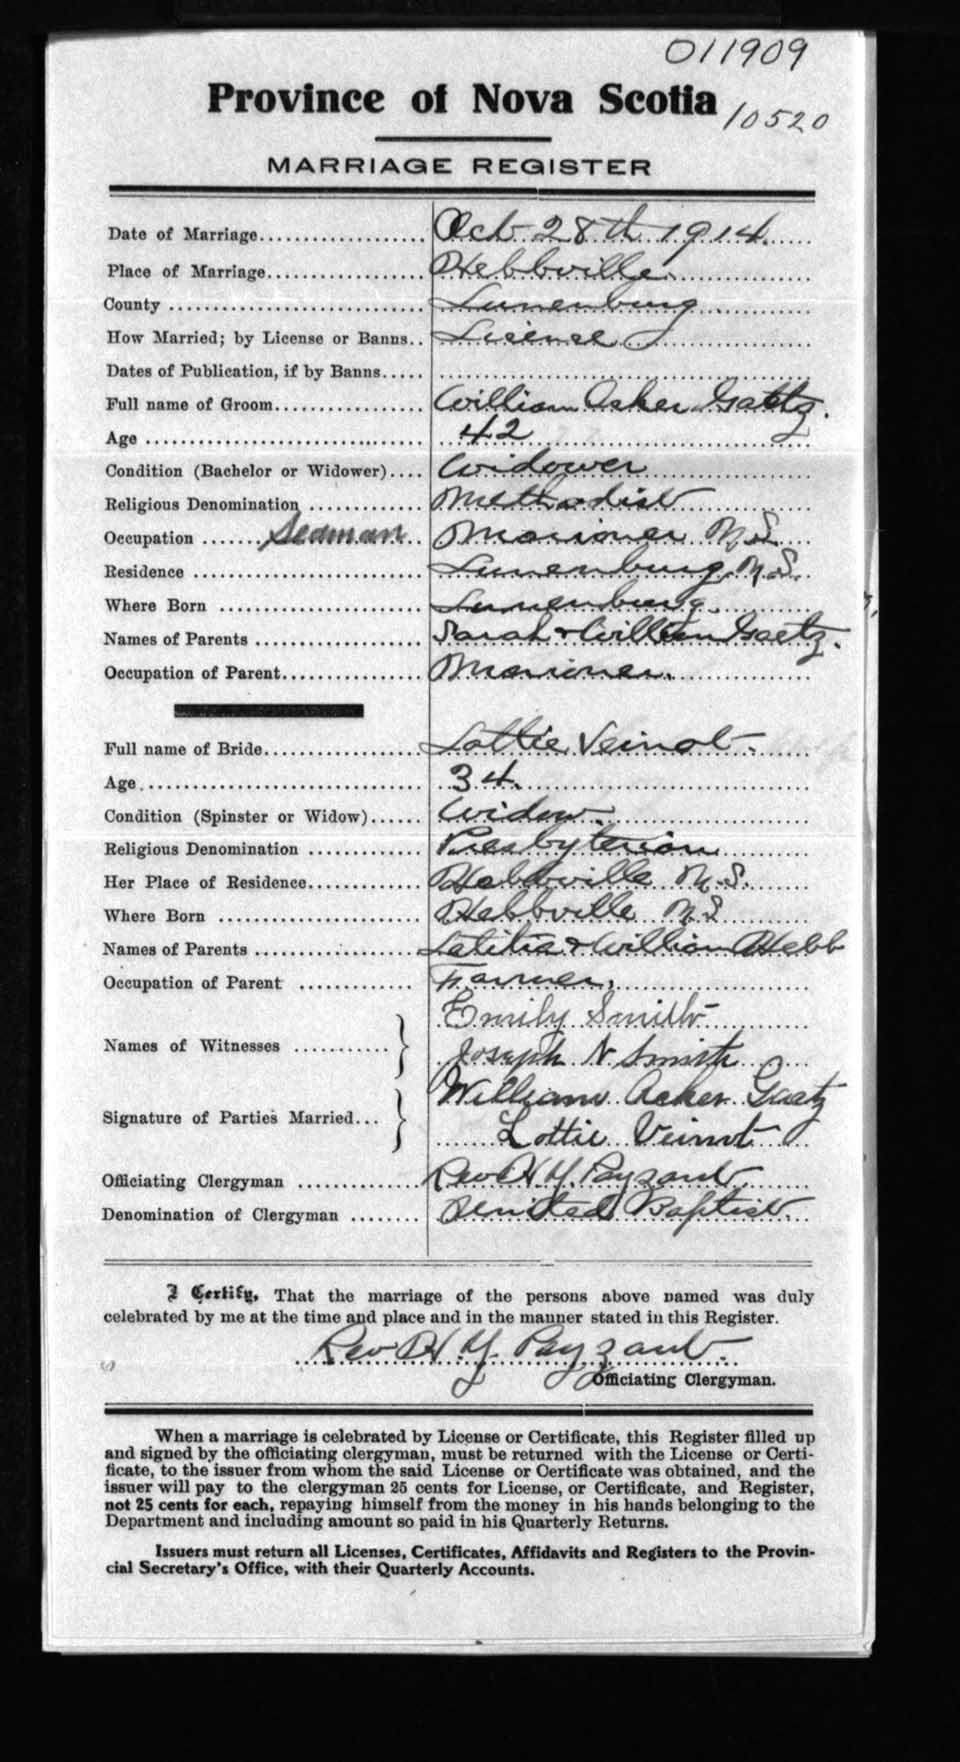 011909
Province of Nova Scotia
10520
MARRIAGE REGISTER
Date of Marriage.................... Oct 28th 1914
Place of Marriage.................. Hebbville
County ............................ Lunenburg
How Married; by License or Banns.. Licence
Dates of Publication, if by Banns.....
Full name of Groom................. William Acker Gaetz.
Age ............................... 42
Condition (Bachelor or Widower).... Widower
Religious Denomination ............ Methodist
Occupation .......Seaman.. Mariner N.S.
Residence ......................... Lunenburg, N.S.
Where Born ........................ Lunenburg.
Names of Parents .................. Sarah + William Gaetz.
Occupation of Parent............... Mariner.
Full name of Bride................. Lottie Veinot.
Age................................ 34.
Condition (Spinster or Widow)...... Widow.
Religious Denomination ............ Presbyterian
Her Place of Residence............. Hebbville N.S.
Where Born ........................ Hebbville N.S
Names of Parents .................. Letitia + William Hebb
Occupation of Parent ............. Farmer.
Emily Smith
Names of Witnesses ...........
Joseph N Smith
William Acker Gaetz
Signature of Parties Married...
Lottie Veinot
Officiating Clergyman .............. Rev H Y. Payzant.
Denomination of Clergyman ........ United Baptist.
I Certify, That the marriage of the persons above named was duly
celebrated by me at the time and place and in the manner stated in this Register.
Rev H Y. Payzant.
Officiating Clergyman.
When a marriage is celebrated by License or Certificate, this Register filled up
and signed by the officiating clergyman, must be returned with the License or Certi-
ficate, to the issuer from whom the said License or Certificate was obtained, and the
issuer will pay to the clergyman 25 cents for License, or Certificate, and Register,
not 25 cents for each, repaying himself from the money in his hands belonging to the
Department and including amount so paid in his Quarterly Returns.
Issuers must return all Licenses, Certificates, Affidavits and Registers to the Provin-
cial Secretary's Office, with their Quarterly Accounts.